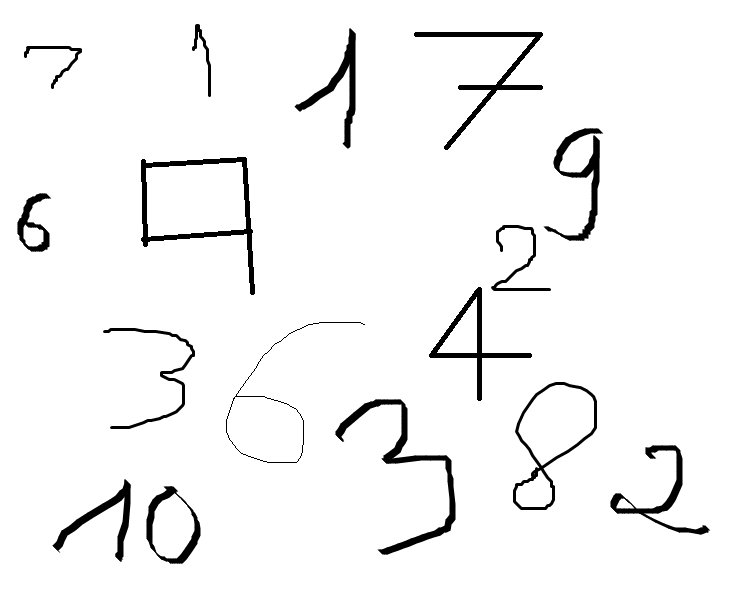 7 1 1 7
6 9 9
2
3 6 4
3 8 2
10